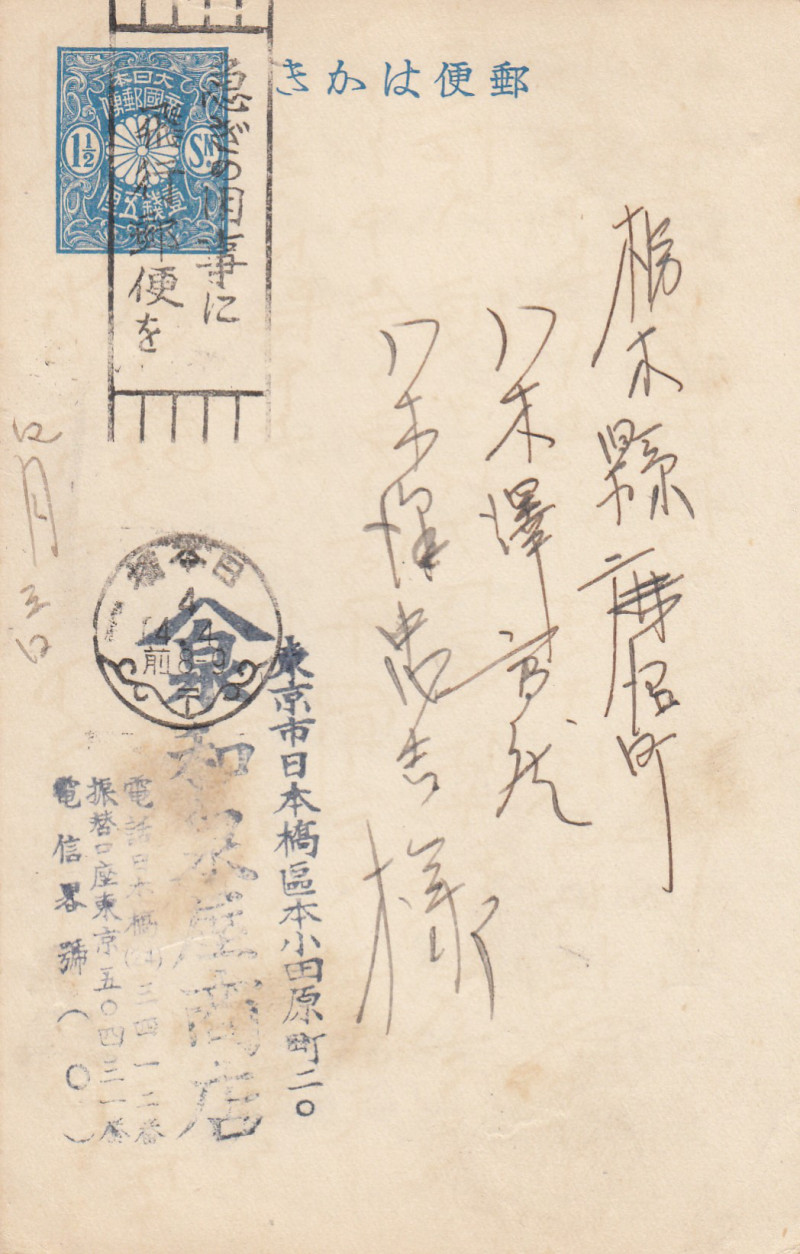 郵便はかき
大日本
帝國郵便
1½ SN
壹錢五厘
急ぎの用事に
飛行郵便を
栃木縣
八木澤
八木澤忠吉様
四月三日
日本橋
4
14.4
前8-9
泉
東京市日本橋區本小田原町二〇
和泉屋商店
電話日本橋(24)三四一二番
振替口座東京五〇四三一番
電信畧號(〇)